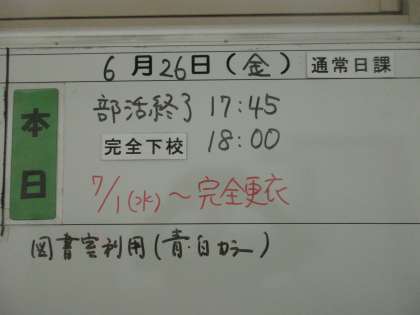 6月26日(金) 通常日課
本日
部活終了 17:45
完全下校 18:00
7/1(水)～完全更衣
図書室利用(青・白カラー)